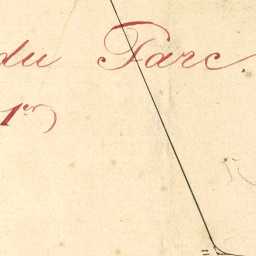 du Parc
1er